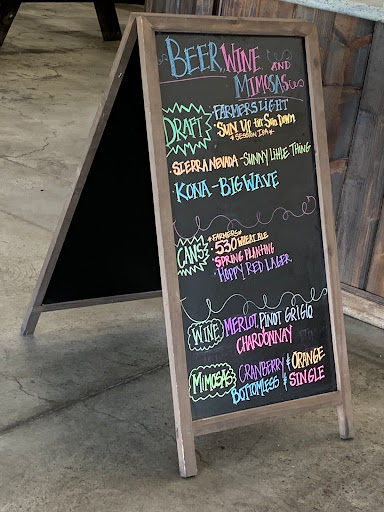 BEER, WINE AND
MIMOSAS
DRAFT
FARMERS LIGHT
SUN UP till SUN DOWN
* SESSION IPA *
SIERRA NEVADA - SUNNY LITTLE THING
KONA - BIG WAVE
CANS
*FARMERS*
530 WHEAT ALE
SPRING PLANTING
HOPPY RED LAGER
WINE MERLOT, PINOT GRIGIO
CHARDONNAY
MIMOSAS CRANBERRY & ORANGE
BOTTOMLESS & SINGLE